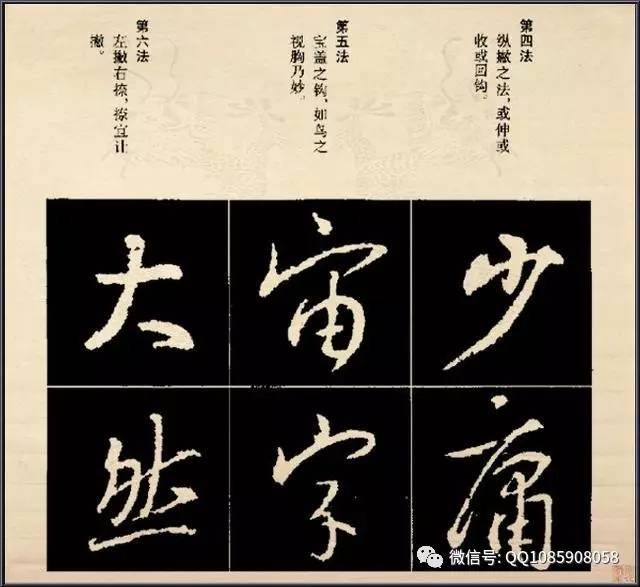 第四法
纵撇之法，或伸或
收或回钩。
第五法
宝盖之钩，如鸟之
视胸乃妙。
第六法
左撇右捺，捺宜让
撇。
少
庸
宙
字
大
然
微信号: QQ1085908058